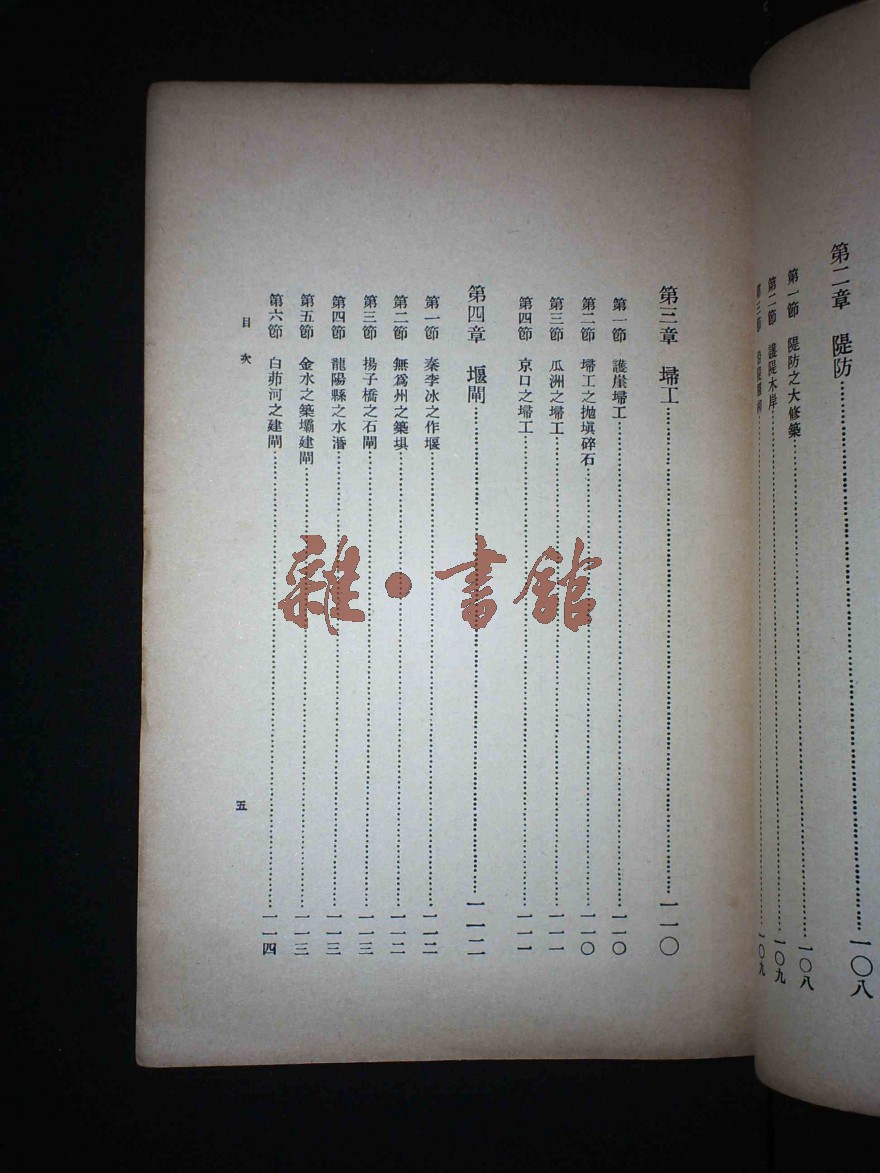 第二章　隄防……一〇八
第一節　隄防之大修築……一〇八
第二節　護隄木岸……一〇九
第三節……一〇九
第三章　埽工……一一〇
第一節　護崖埽工……一一〇
第二節　埽工之拋塡碎石……一一〇
第三節　瓜洲之埽工……一一一
第四節　京口之埽工……一一一
第四章　堰閘……一一二
第一節　秦李冰之作堰……一一二
第二節　無爲州之築埧……一一二
第三節　揚子橋之石閘……一一三
第四節　龍陽縣之水㵎……一一三
第五節　金水之築壩建閘……一一三
第六節　白茆河之建閘……一一四
目次
五
雜·書館